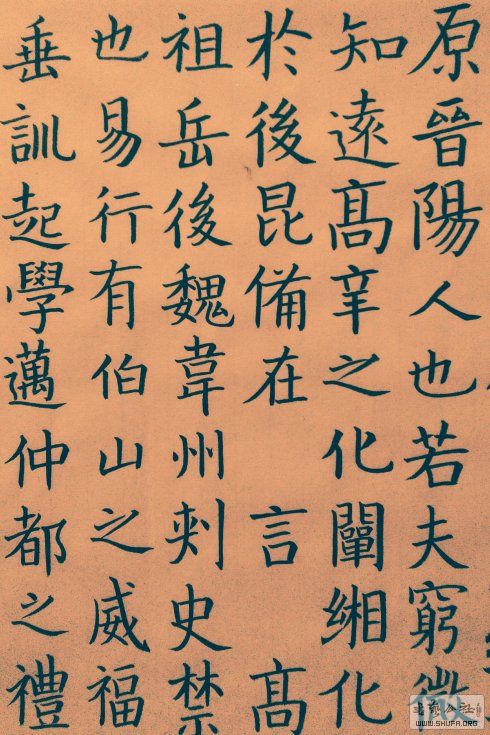 原晉陽人也若夫窮微
知遠髙辛之化闡緗化
於後昆備在言髙
祖岳後魏韋州刺史禁
也易行有伯山之威福
垂訓起學邁仲都之禮
WWW.SHUFA.ORG